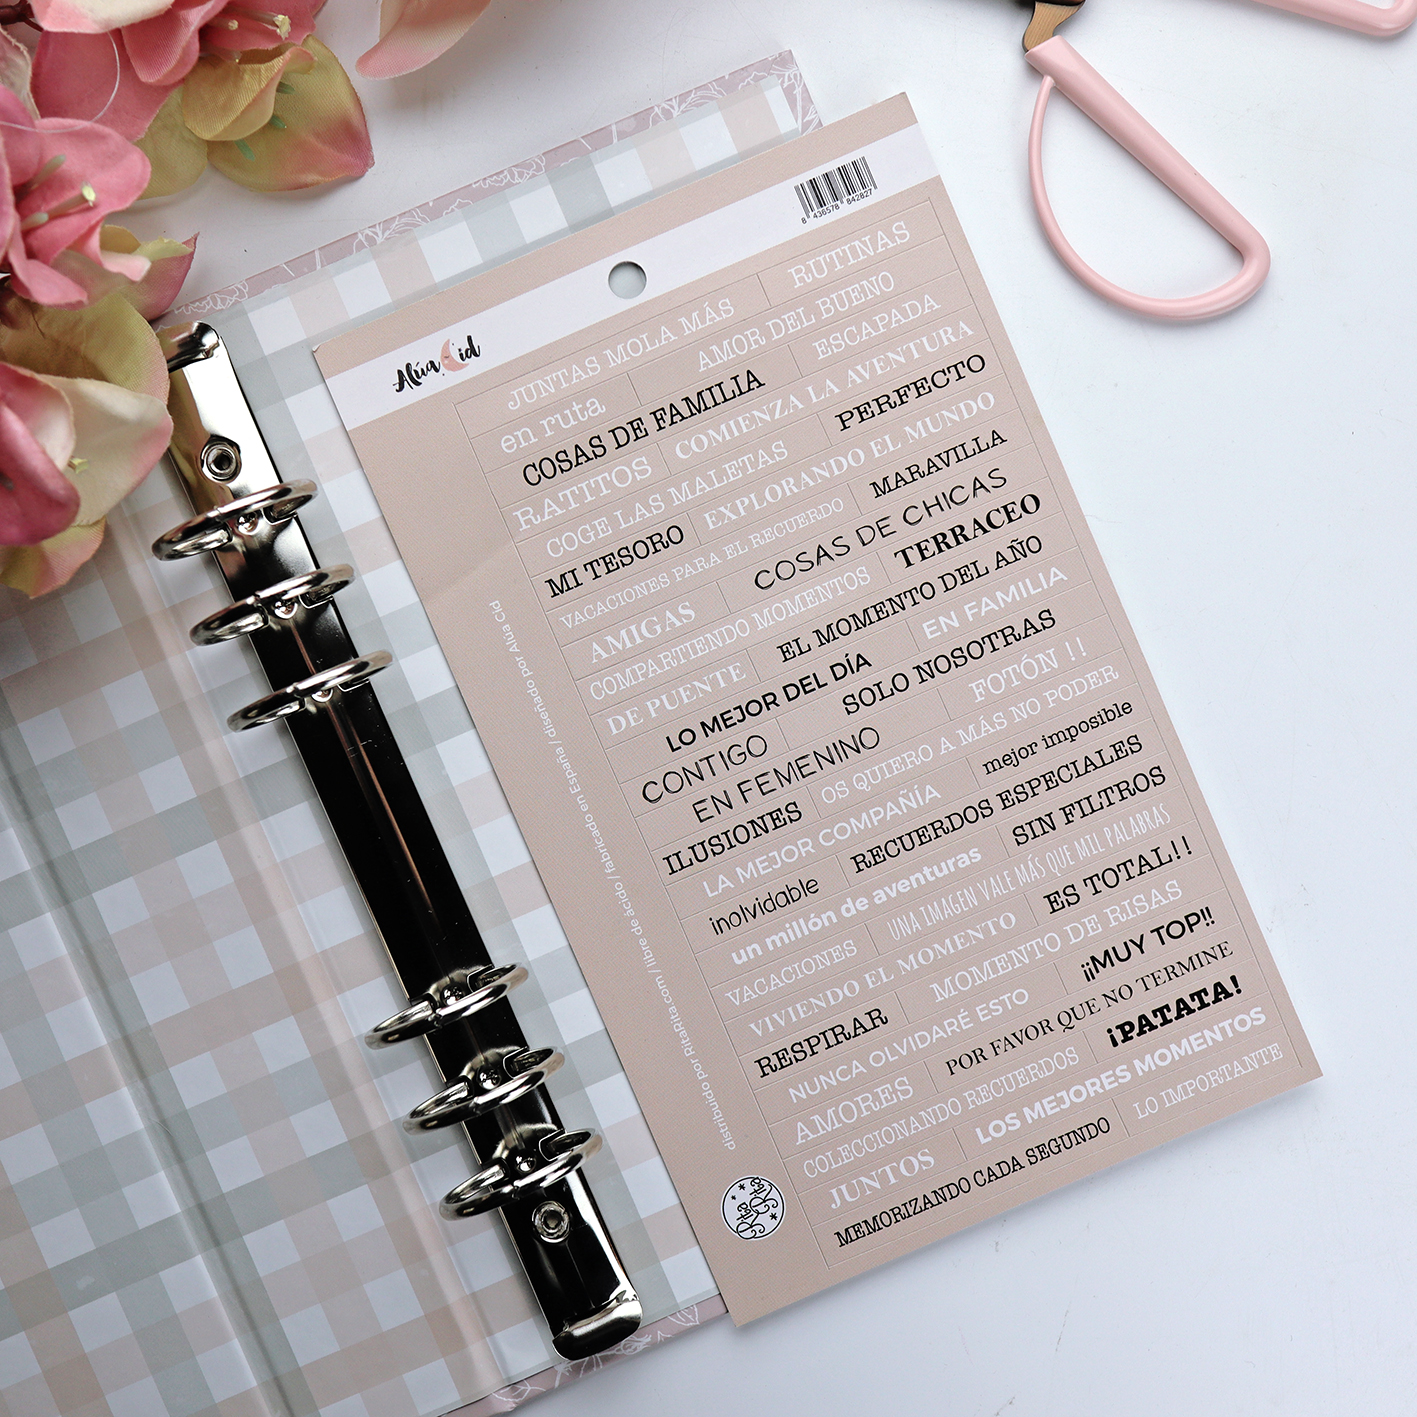 8 436578 842827
Alúa Cid
JUNTAS MOLA MÁS RUTINAS
en ruta AMOR DEL BUENO
COSAS DE FAMILIA ESCAPADA
RATITOS COMIENZA LA AVENTURA
COGE LAS MALETAS PERFECTO
MI TESORO EXPLORANDO EL MUNDO
VACACIONES PARA EL RECUERDO MARAVILLA
AMIGAS COSAS DE CHICAS
COMPARTIENDO MOMENTOS TERRACEO
DE PUENTE EL MOMENTO DEL AÑO
LO MEJOR DEL DÍA EN FAMILIA
CONTIGO SOLO NOSOTRAS
EN FEMENINO FOTÓN !!
ILUSIONES OS QUIERO A MÁS NO PODER
LA MEJOR COMPAÑÍA mejor imposible
inolvidable RECUERDOS ESPECIALES
un millón de aventuras SIN FILTROS
VACACIONES UNA IMAGEN VALE MÁS QUE MIL PALABRAS
VIVIENDO EL MOMENTO ES TOTAL!!
RESPIRAR MOMENTO DE RISAS
NUNCA OLVIDARÉ ESTO ¡¡MUY TOP!!
AMORES POR FAVOR QUE NO TERMINE
COLECCIONANDO RECUERDOS ¡PATATA!
JUNTOS LOS MEJORES MOMENTOS
MEMORIZANDO CADA SEGUNDO LO IMPORTANTE
distribuido por RitaRita.com/ libre de ácido/ fabricado en España/ diseñado por Alúa Cid
Rita Rita